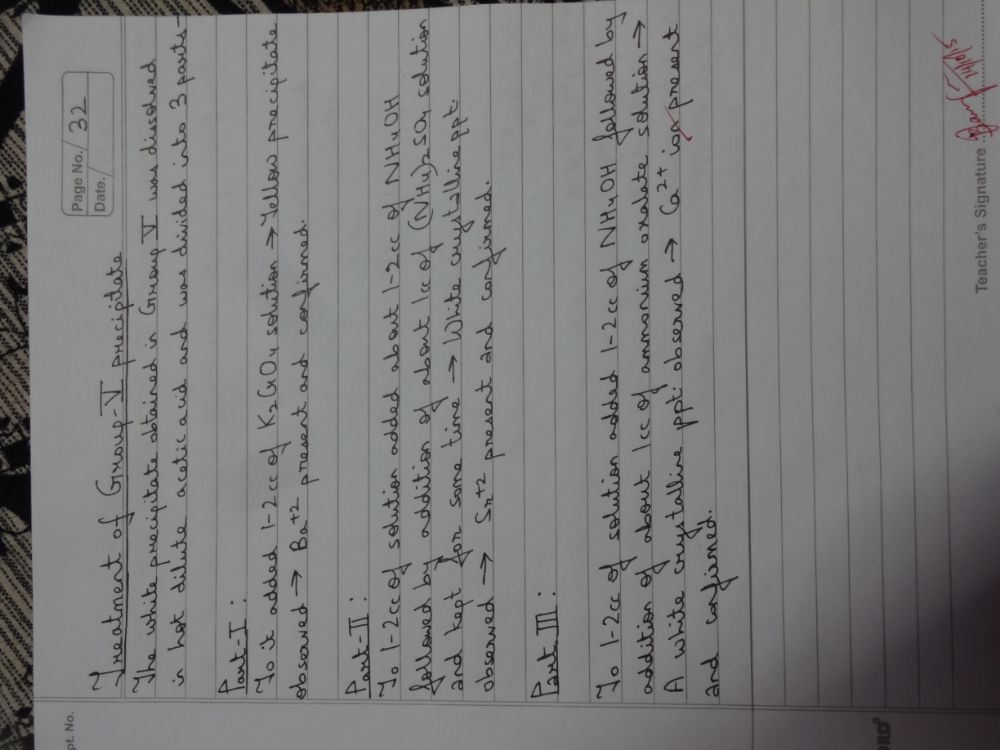 Page No. 32
Date.
pt. No.
Treatment of Group-V precipitate
The white precipitate obtained in Group V was dissolved
in hot dilute acetic acid and was divided into 3 parts-
Part-I :
To it added 1-2cc of K2CrO4 solution → Yellow precipitate
observed → Ba+2 present and confirmed.
Part-II :
To 1-2cc of solution added about 1-2cc of NH4OH
followed by addition of about 1cc of (NH4)2SO4 solution
and kept for some time → White crystalline ppt.
observed → Sr+2 present and confirmed.
Part III :
To 1-2cc of solution added 1-2cc of NH4OH followed by
addition of about 1cc of ammonium oxalate solution →
A white crystalline ppt. observed → Ca2+ ion present
and confirmed.
Teacher's Signature